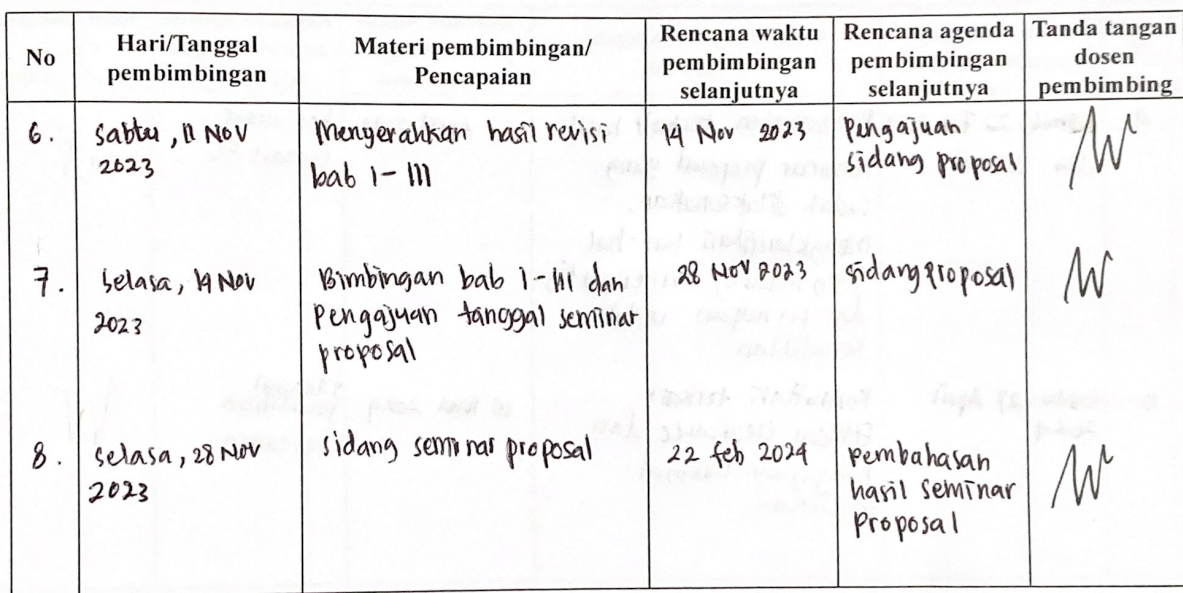 No
Hari/Tanggal
pembimbingan
Materi pembimbingan/
Pencapaian
Rencana waktu
pembimbingan
selanjutnya
Rencana agenda
pembimbingan
selanjutnya
Tanda tangan
dosen
pembimbing
6.
Sabtu, 11 Nov
2023
Menyerahkan hasil revisi
bab I - III
14 Nov 2023
Pengajuan
sidang proposal
7.
Selasa, 14 Nov
2023
Bimbingan bab I - III dan
Pengajuan tanggal seminar
proposal
28 Nov 2023
Sidang proposal
8.
Selasa, 28 Nov
2023
Sidang seminar proposal
22 feb 2024
Pembahasan
hasil seminar
Proposal